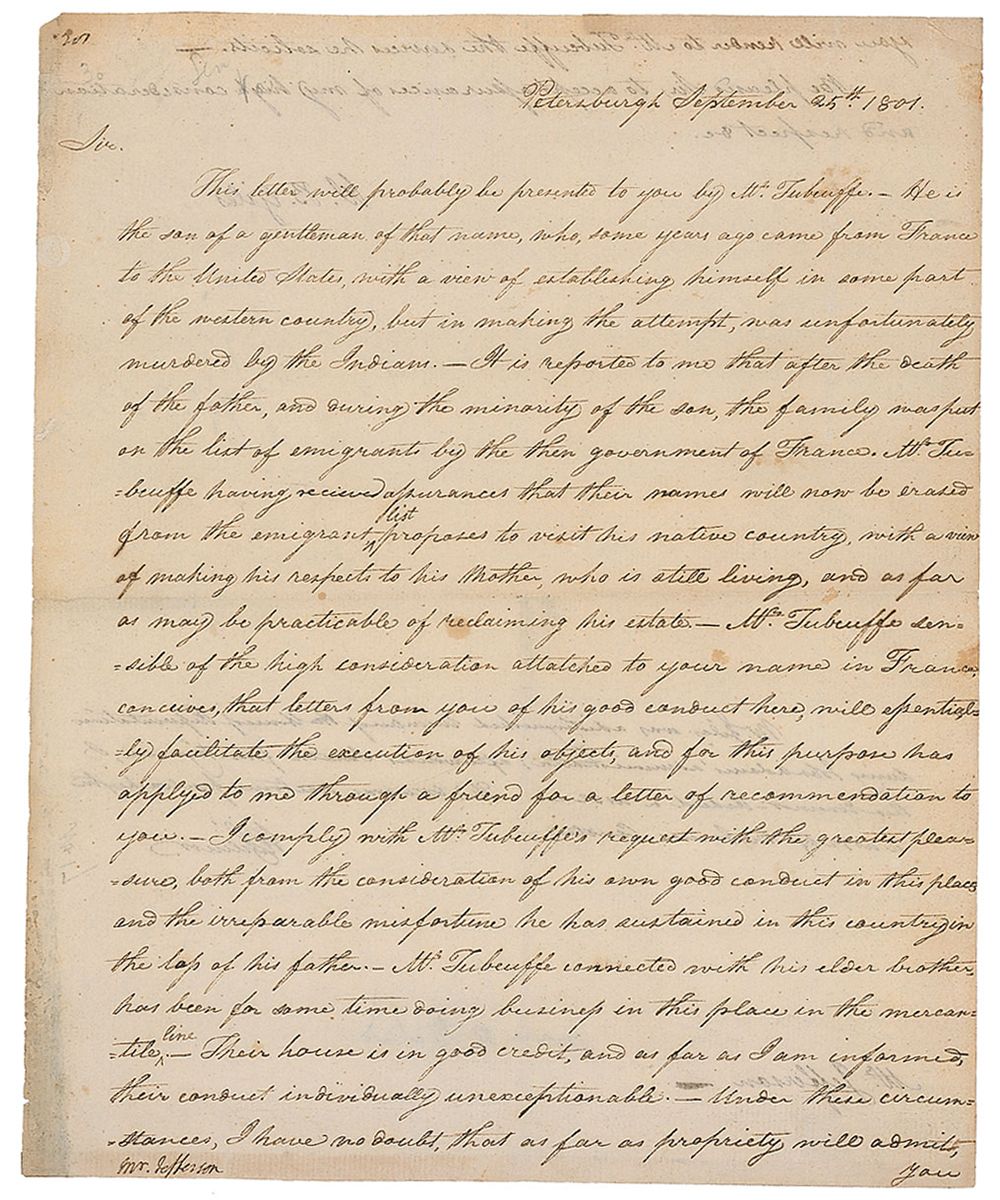 Petersburgh September 25th. 1801.
Sir.
This letter will probably be presented to you by Mr. Tubeuffe.— He is
the son of a gentleman of that name, who, some years ago came from France
to the United States, with a view of establishing himself in some part
of the western country, but in making the attempt, was unfortunately
murdered by the Indians.— It is reported to me that after the death
of the father, and during the minority of the son, the family was put
on the list of emigrants by the then government of France. Mr. Tu=
=beuffe having recieved assurances that their names will now be erased
from the emigrant ^list proposes to visit his native country, with a view
of making his respects to his Mother, who is still living, and as far
as may be practicable of reclaiming his estate.— Mr. Tubeuffe sen=
=sible of the high consideration attatched to your name in France,
conceives, that letters from you of his good conduct here, will essential=
=ly facilitate the execution of his objects, and for this purpose has
applyed to me through a friend for a letter of recommendation to
you.— I comply with Mr. Tubeuffe's request with the greatest plea=
=sure, both from the consideration of his own good conduct in this place
and the irreparable misfortune he has sustained in this country in
the loss of his father.— Mr. Tubeuffe connected with his elder brother
has been for some time doing business in this place in the mercan=
=tile ^line— Their house is in good credit, and as far as I am informed,
their conduct individually unexceptionable.— Under these circum=
=stances, I have no doubt, that as far as propriety will admit,
Mr. Jefferson
you